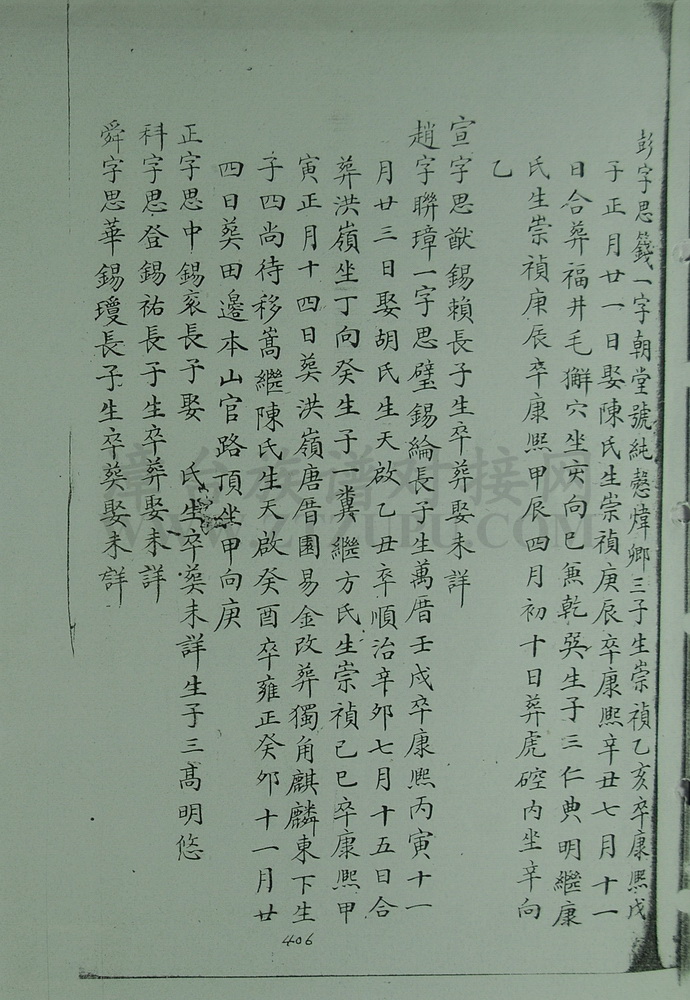 彭字思籛一字朝堂號純慤煒卿三子生崇禎乙亥卒康熙戊
子正月廿一日娶陳氏生崇禎庚辰卒康熙辛丑七月十一
日合葬福井毛獬穴坐亥向巳無乾巽生子三仁典明繼康
氏生崇禎庚辰卒康熙甲辰四月初十日葬虎硿內坐辛向
乙
宣字思猷錫賴長子生卒葬娶未詳
趙字聯璋一字思璧錫綸長子生萬厯壬戌卒康熙丙寅十一
月廿三日娶胡氏生天啟乙丑卒順治辛夘七月十五日合
葬洪嶺坐丁向癸生子一糞繼方氏生崇禎己巳卒康熙甲
寅正月十四日葬洪嶺唐厝園易金改葬獨角麒麟東下生
子四尚待移嵩繼陳氏生天啟癸酉卒雍正癸夘十一月廿
四日葬田邊本山官路頂坐甲向庚
正字思中錫袞長子娶 氏生卒葬未詳生子三高明悠
科字思登錫祐長子生卒葬娶未詳
舜字思華錫瓊長子生卒葬娶未詳
406
章台族谱对接网
WWW.ZTZUPU.COM